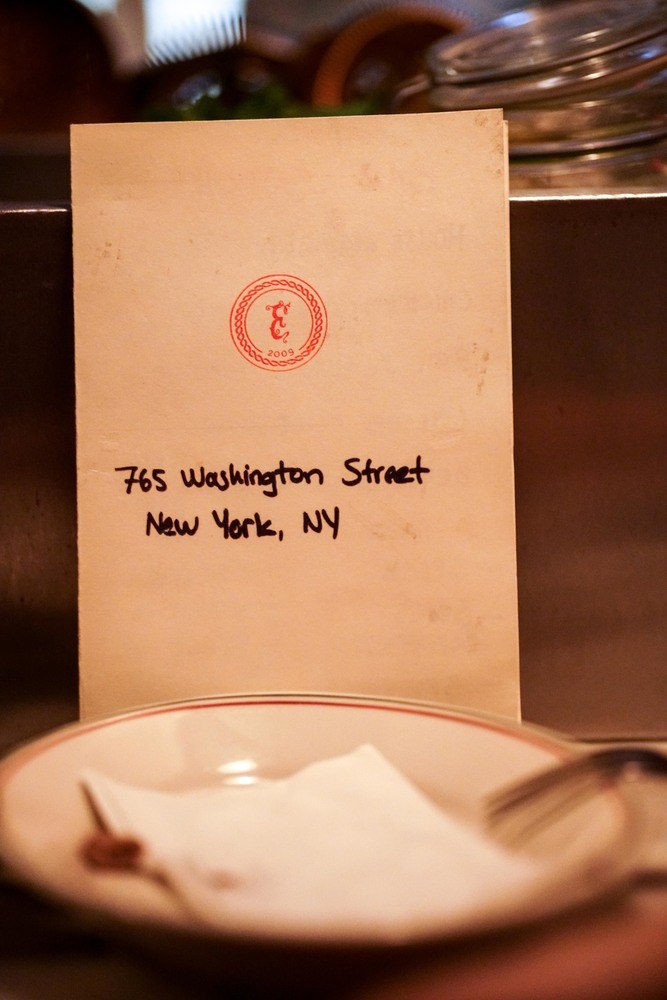 E
2009
765 Washington Street
New York, NY